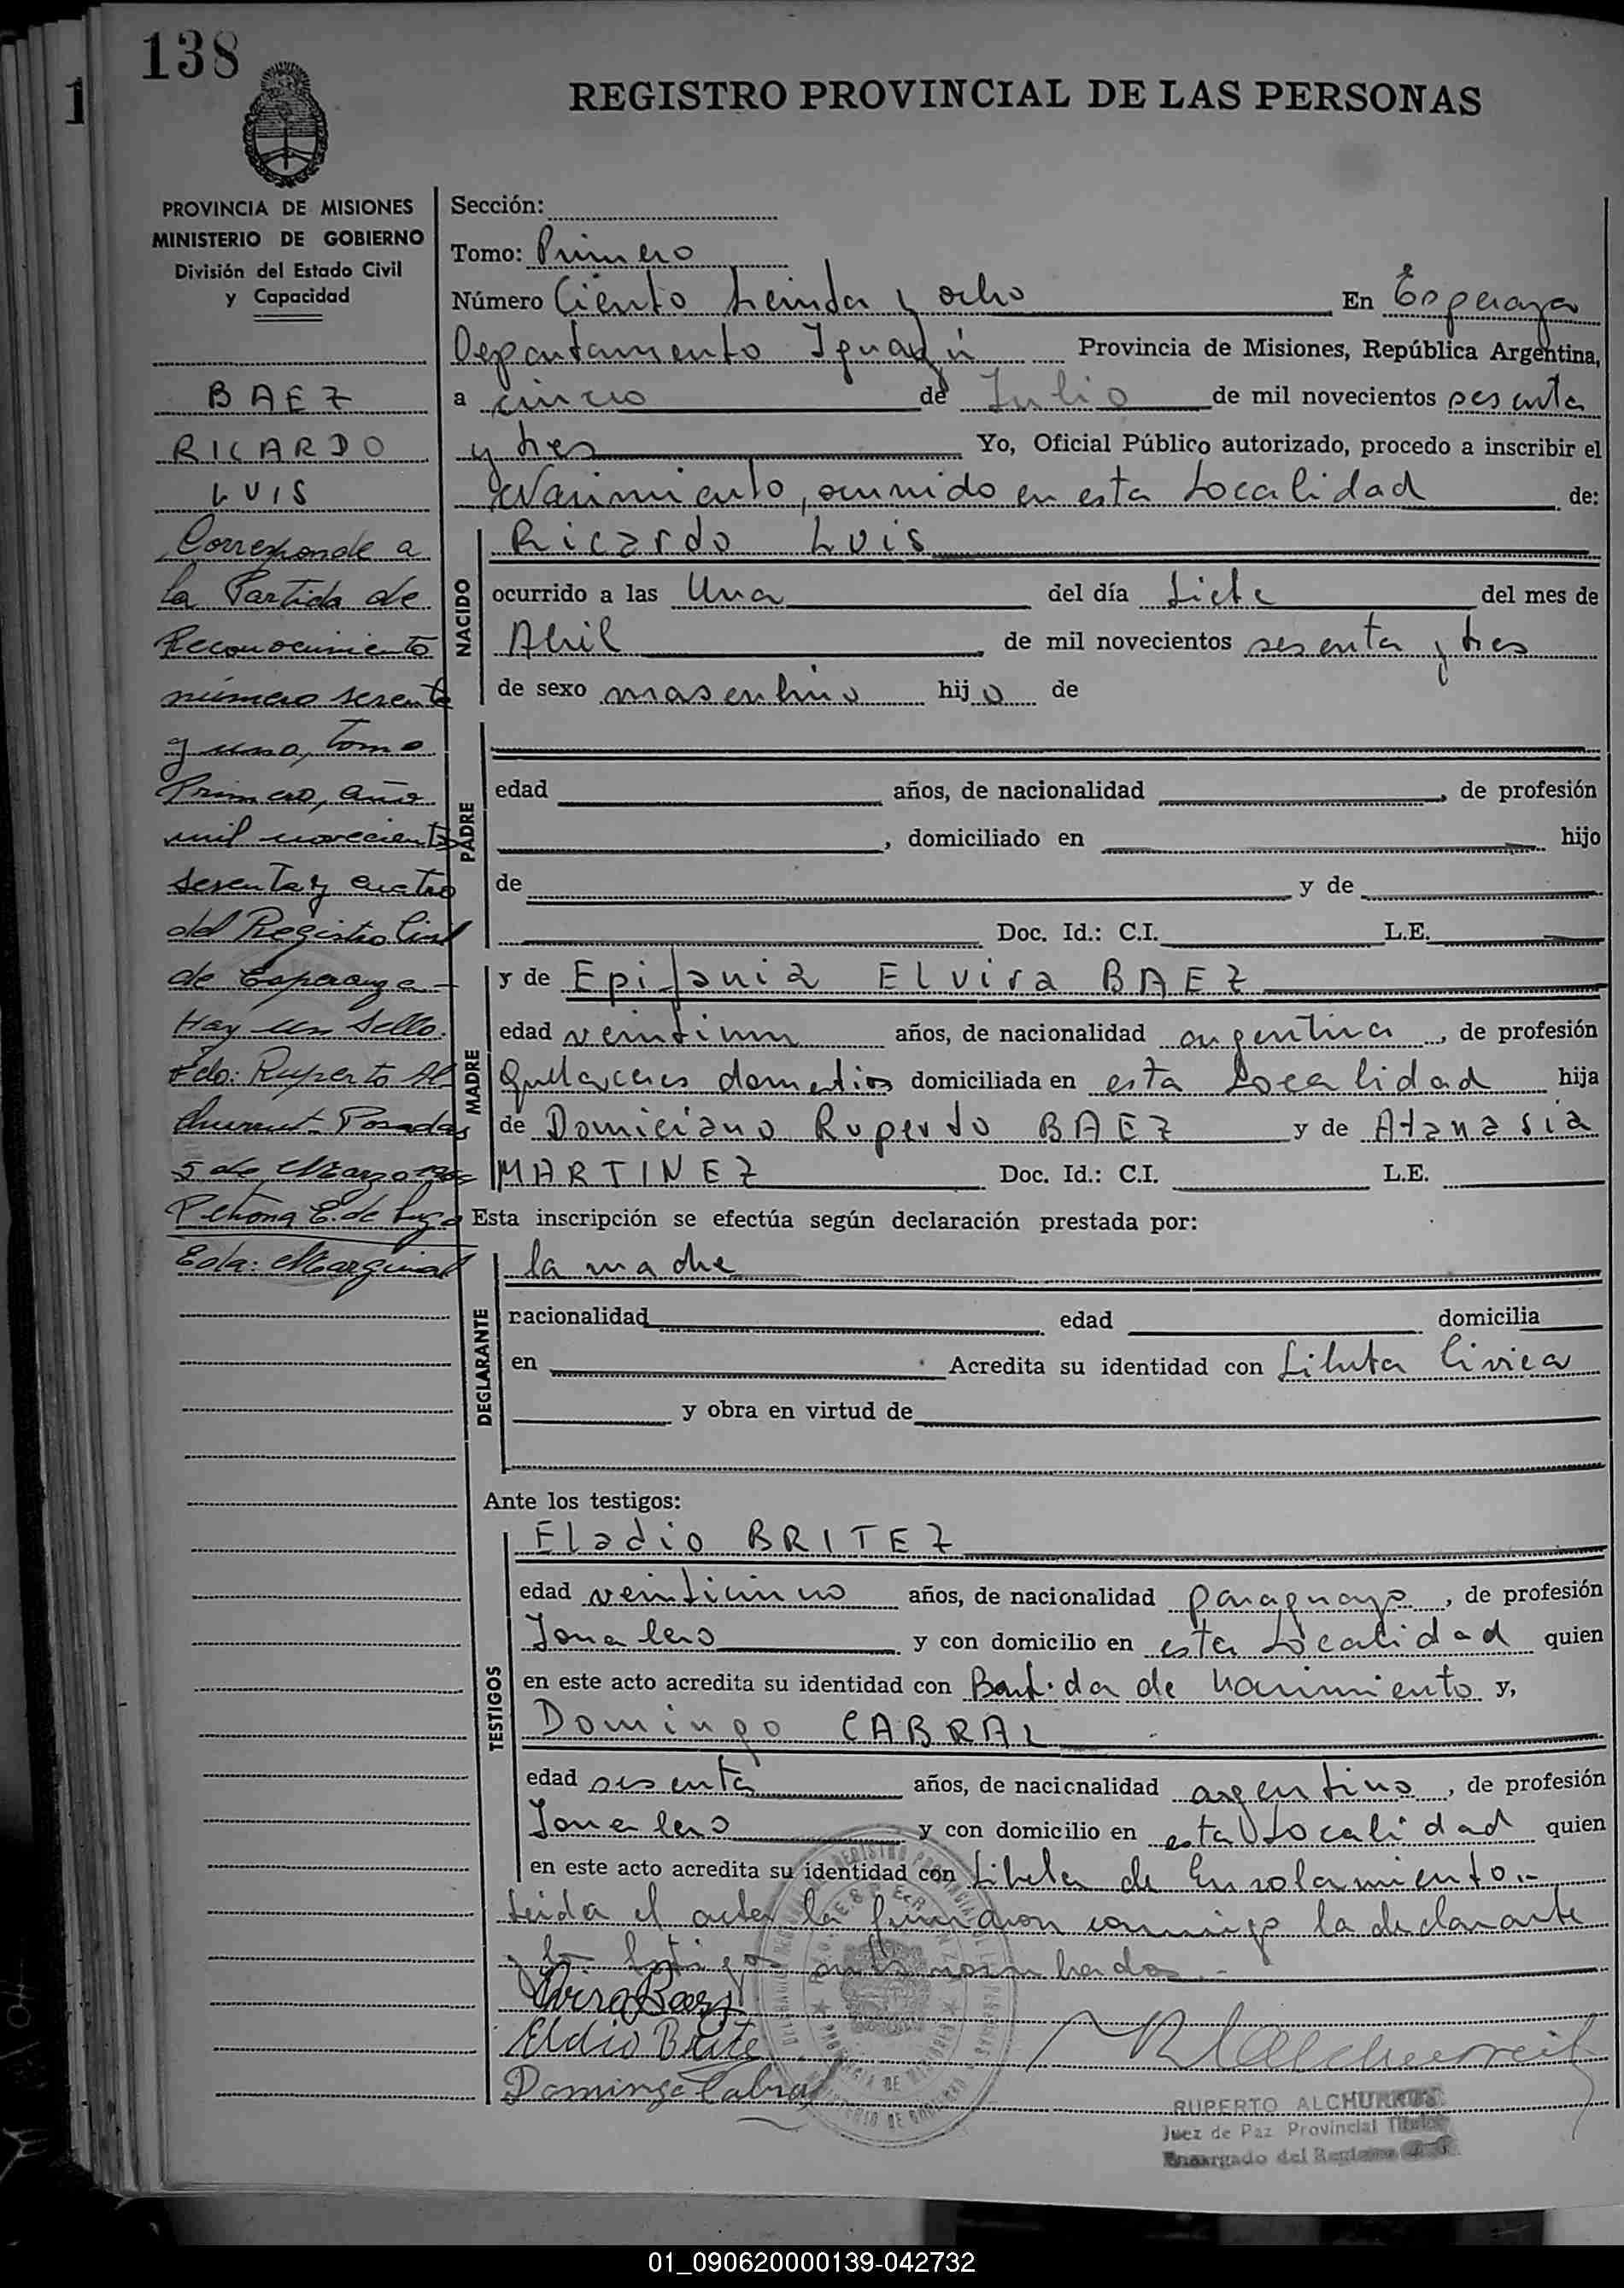 138
REGISTRO PROVINCIAL DE LAS PERSONAS
PROVINCIA DE MISIONES
MINISTERIO DE GOBIERNO
División del Estado Civil
y Capacidad
BAEZ
RICARDO
LUIS
Corresponde a
la Partida de
Reconocimiento
número sesenta
y uno, tomo
Primero, año
mil novecientos
sesenta y cuatro
del Registro Civil
de Esperanza
Hay un Sello.
Fdo: Ruperto Al
churrut Posadas
5 de Marzo
Petrona E. de Lugo
Esta: Marginal
Sección:
Tomo: Primero
Número Ciento treinta y ocho En Esperanza
Departamento Iguazú Provincia de Misiones, República Argentina,
a cinco de Julio de mil novecientos sesenta
y tres Yo, Oficial Público autorizado, procedo a inscribir el
Nacimiento, ocurrido en esta Localidad de:
NACIDO
Ricardo Luis
ocurrido a las Una del día Siete del mes de
Abril de mil novecientos sesenta y tres
de sexo masculino hijo de
PADRE
edad años, de nacionalidad , de profesión
, domiciliado en hijo
de y de
Doc. Id.: C.I. L.E.
MADRE
y de Epifania Elvira BAEZ
edad veintiun años, de nacionalidad argentina , de profesión
Quehaceres domesticos domiciliada en esta Localidad hija
de Domiciano Ruperto BAEZ y de Atanasia
MARTINEZ Doc. Id.: C.I. L.E.
Esta inscripción se efectúa según declaración prestada por:
DEGLARANTE
la madre
racionalidad edad domicilia
en Acredita su identidad con Libreta Civica
y obra en virtud de
Ante los testigos:
TESTIGOS
Eladio BRITEZ
edad veinticinco años, de nacionalidad paraguayo , de profesión
Jornalero y con domicilio en esta Localidad quien
en este acto acredita su identidad con Partida de Nacimiento y,
Domingo CABRAL
edad sesenta años, de nacionalidad argentino , de profesión
Jornalero y con domicilio en esta Localidad quien
en este acto acredita su identidad con Libreta de Enrolamiento.-
Leida el acta la firmaron conmigo la declarante
y los testigos antes nombrados.-
Elvira Baez
Eldio Brite
Domingo Cabral
RUPERTO ALCHURRUT
Juez de Paz Provincial Titular
Encargado del Registro
01_090620000139-042732